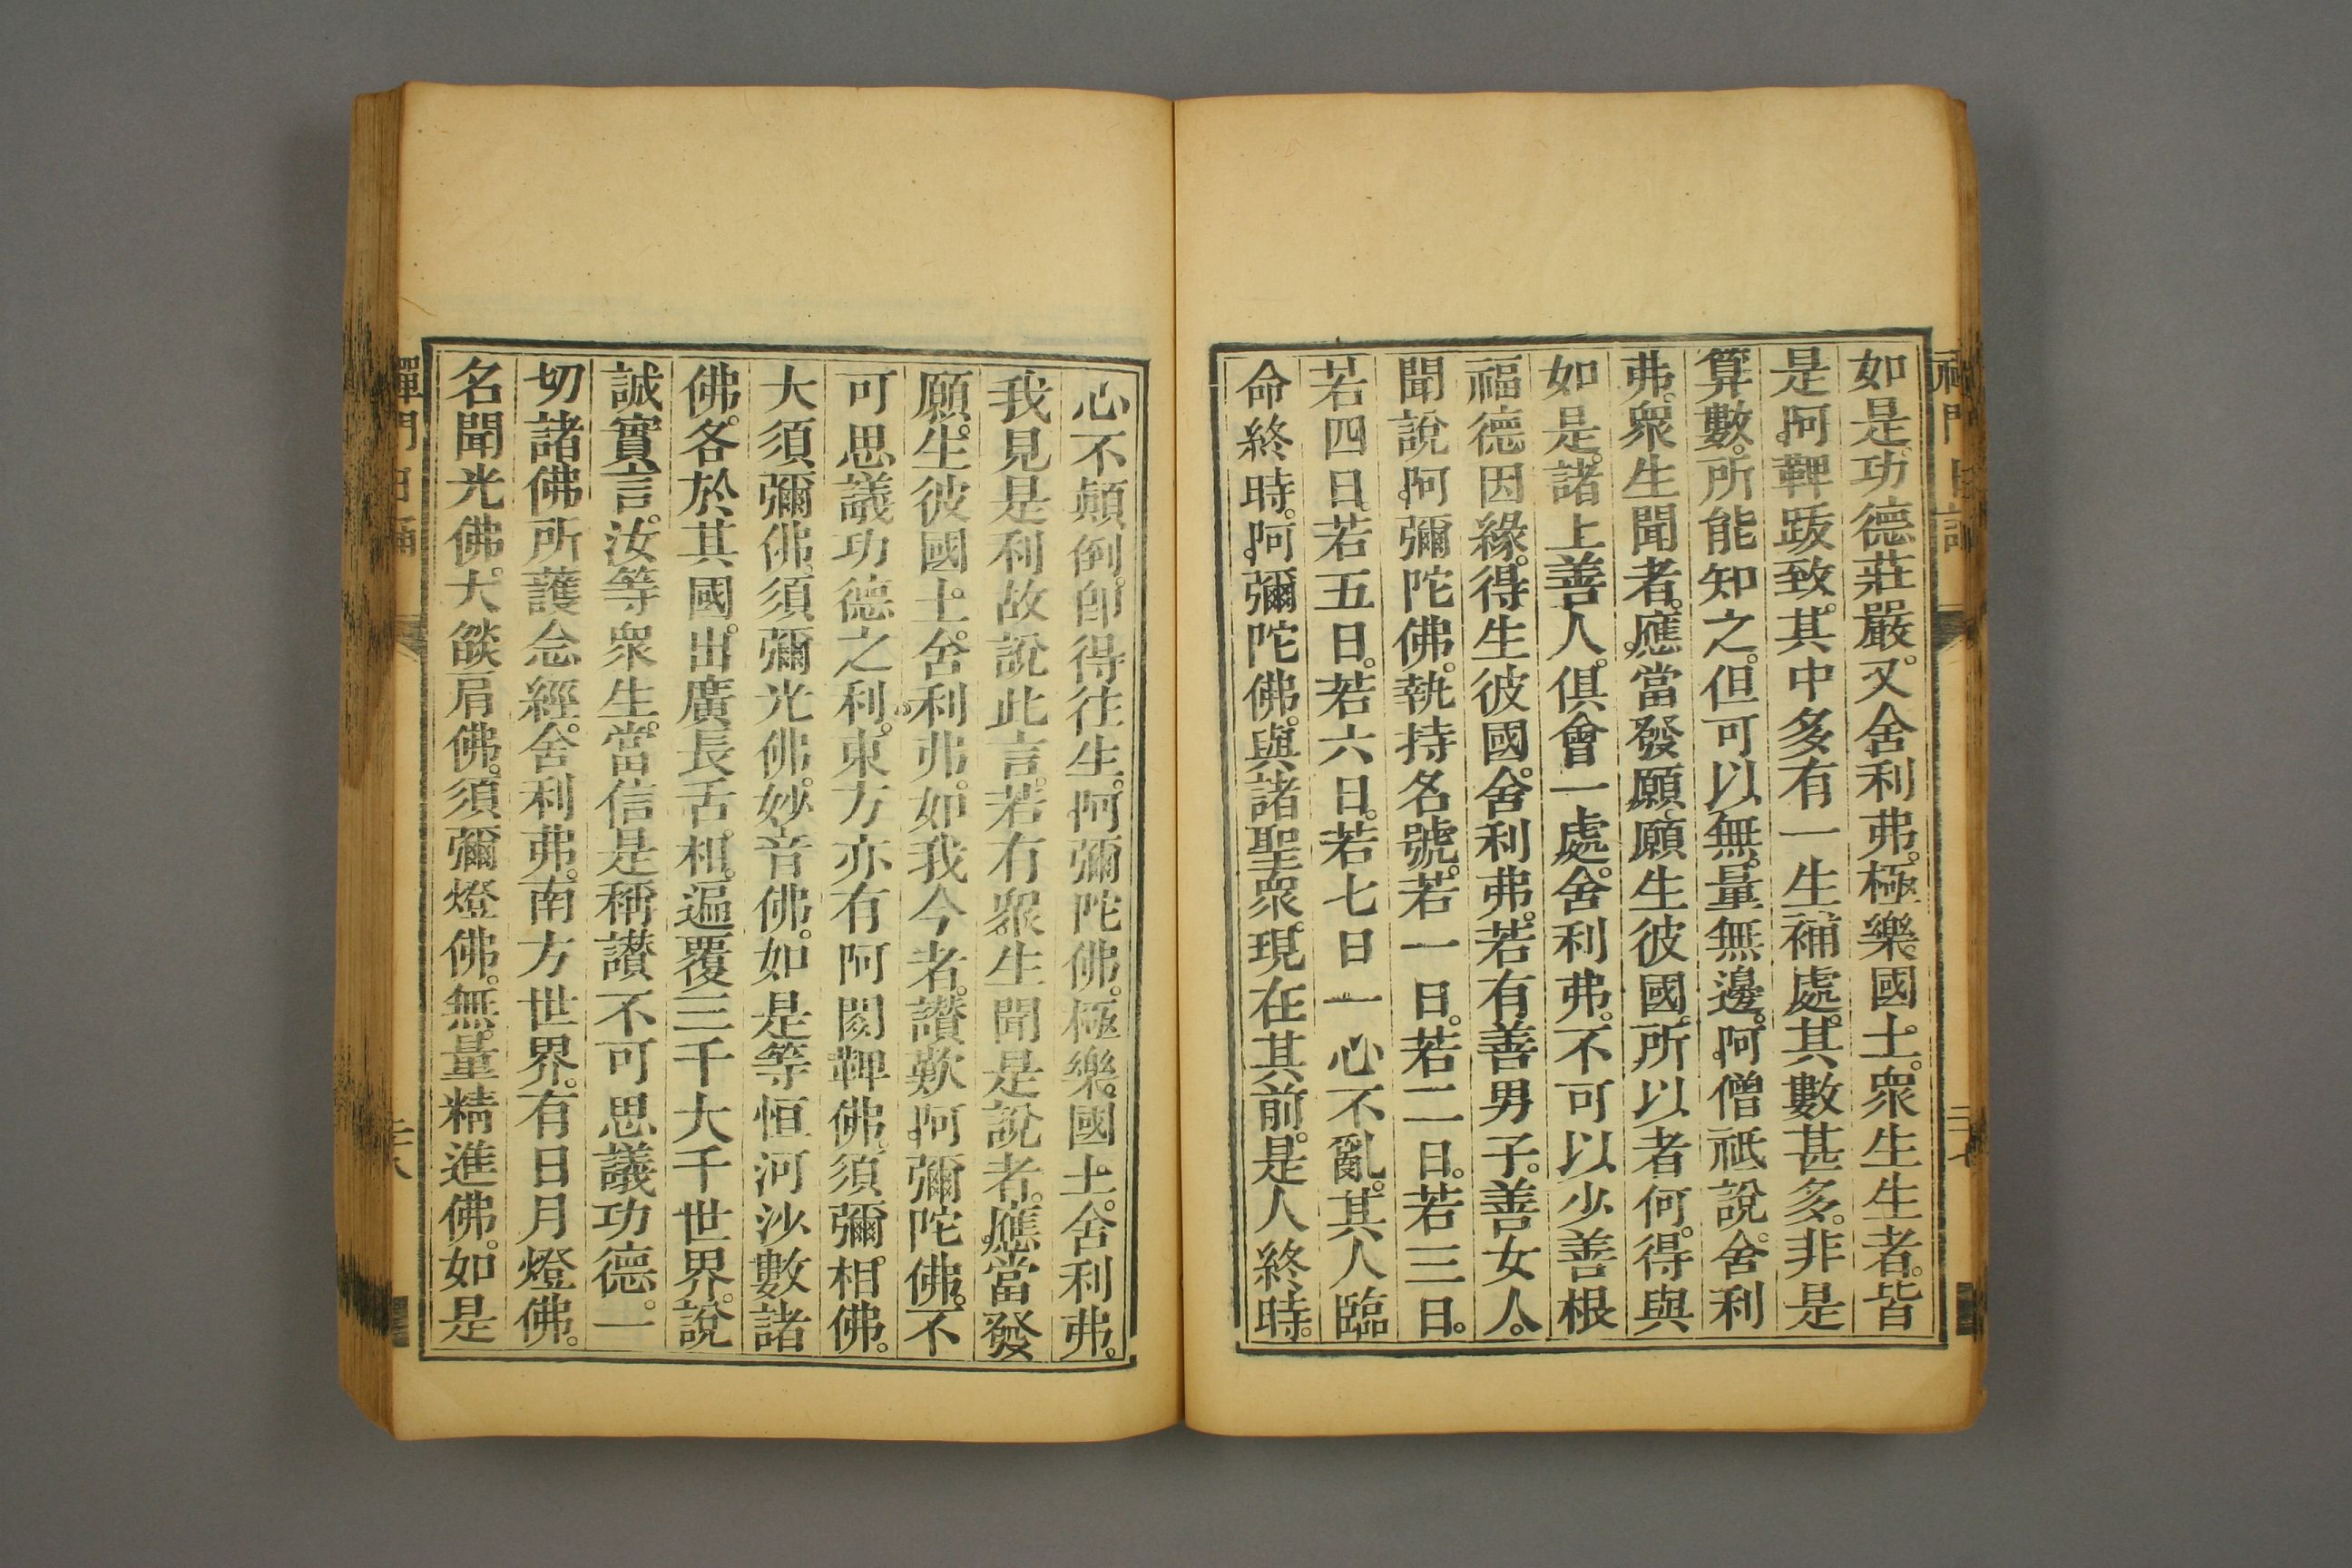 禪門日誦
二十七
如是功德莊嚴。又舍利弗。極樂國土。衆生生者。皆
是阿鞞跋致。其中多有一生補處。其數甚多。非是
算數。所能知之。但可以無量無邊。阿僧祇說。舍利
弗。衆生聞者。應當發願。願生彼國。所以者何。得與
如是。諸上善人。俱會一處。舍利弗。不可以少善根
福德因緣。得生彼國。舍利弗。若有善男子。善女人。
聞說阿彌陀佛。執持名號。若一日。若二日。若三日。
若四日。若五日。若六日。若七日一心不亂。其人臨
命終時。阿彌陀佛。與諸聖衆。現在其前。是人終時。
心不顛倒。即得往生。阿彌陀佛。極樂國土。舍利弗。
我見是利故說此言。若有衆生聞是說者。應當發
願。生彼國土。舍利弗。如我今者。讃歎阿彌陀佛。不
可思議功德之利。東方亦有阿閦鞞佛。須彌相佛。
大須彌佛。須彌光佛。妙音佛。如是等恒河沙數諸
佛。各於其國。出廣長舌相。遍覆三千大千世界。說
誠實言。汝等衆生。當信是稱讃不可思議功德。一
切諸佛所護念經。舍利弗。南方世界。有日月燈佛。
名聞光佛。大燄肩佛。須彌燈佛。無量精進佛。如是
禪門日誦
二十八